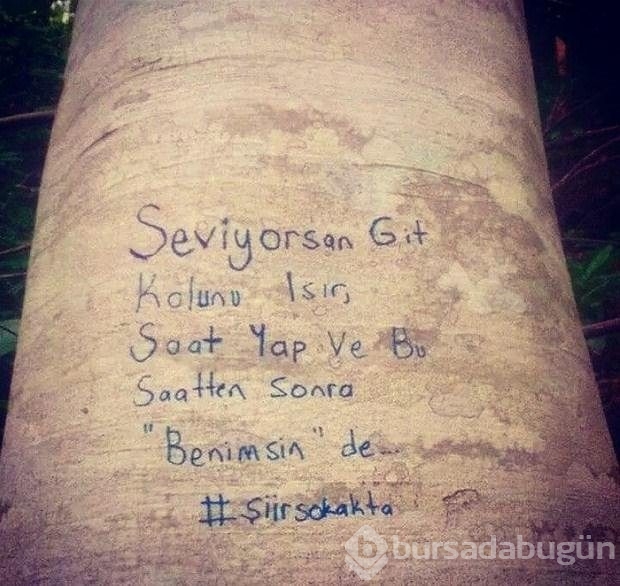 Seviyorsan Git
Kolunu Isır,
Saat Yap Ve Bu
Saatten Sonra
"Benimsin" de...
#şiirsokakta
bursadabugün